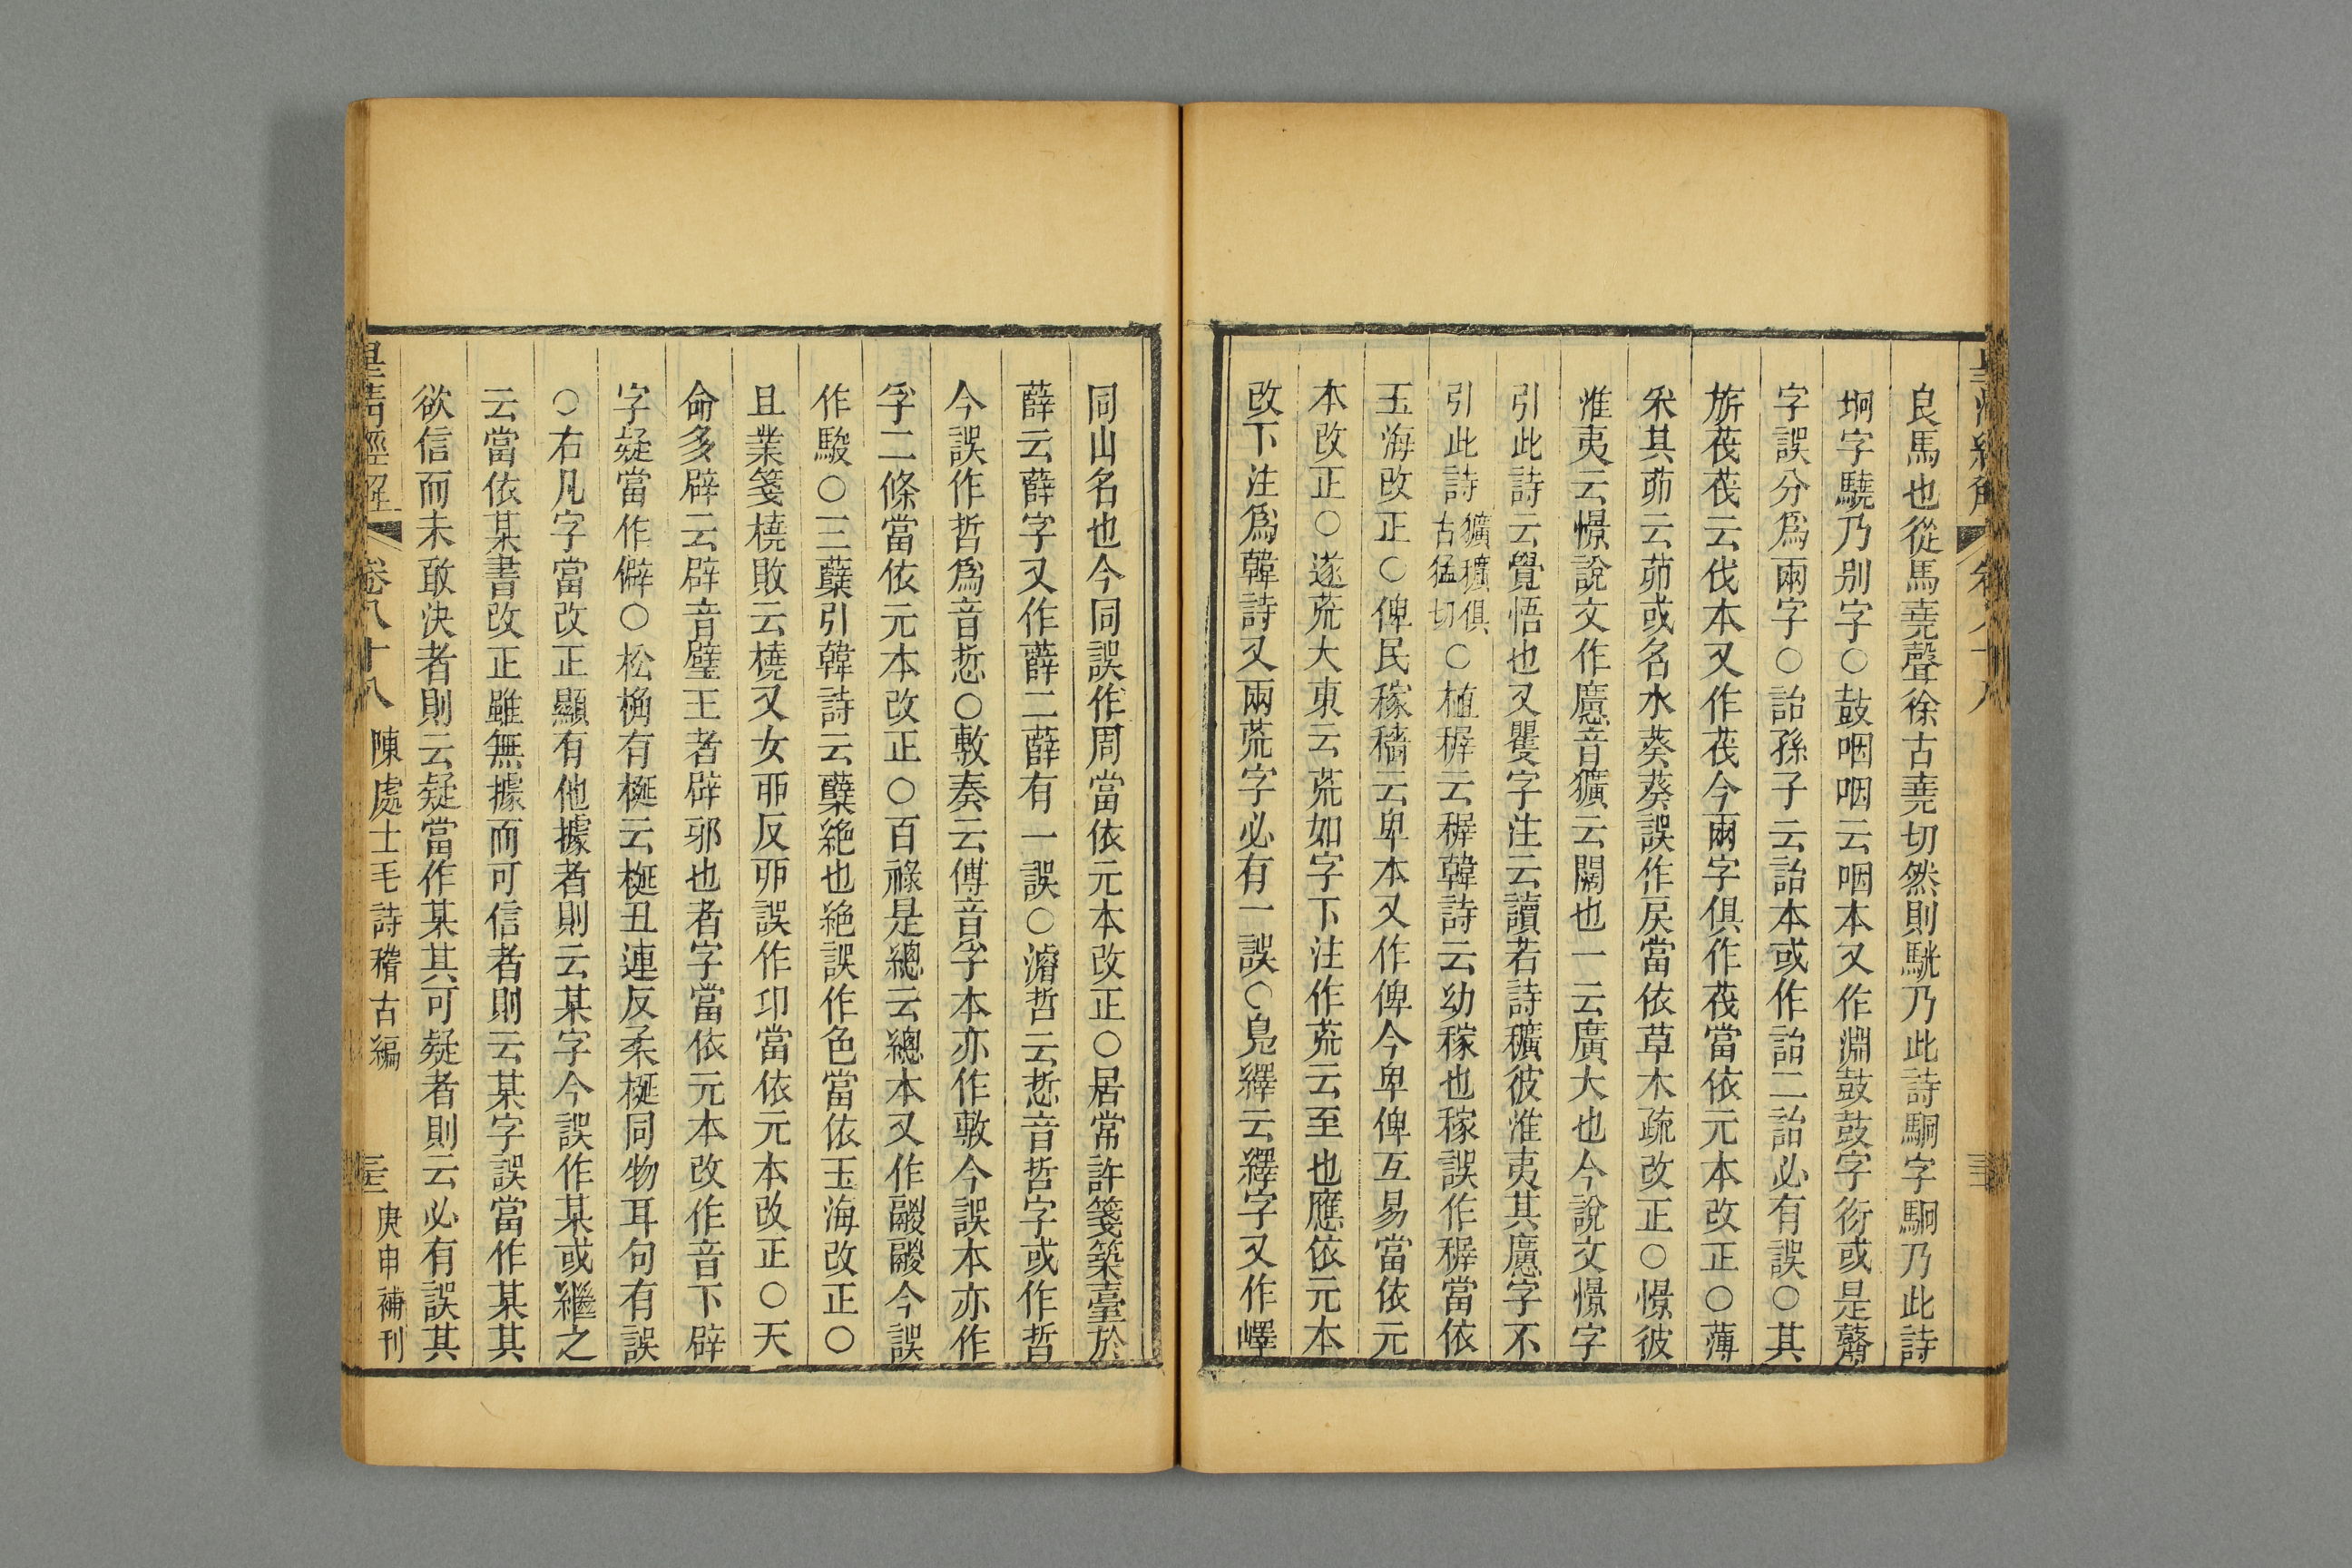 良馬也從馬堯聲徐古堯切然則駫乃此詩駉字駉乃此詩
坰字驍乃别字○鼓咽咽云咽本又作淵鼓鼓字衍或是鼘
字誤分爲兩字○詒孫子云詒本或作詒二詒必有誤○其
旂茷茷云伐本又作茷今兩字俱作茷當依元本改正○薄
采其茆云茆或名水葵葵誤作戻當依草木疏改正○憬彼
淮夷云憬說文作㢠音獷云闊也一云廣大也今說文憬字
引此詩云覺悟也又瞿字注云讀若詩穬彼淮夷其㢠字不
引此詩獷穬俱古猛切○植稺云稺韓詩云幼稼也稼誤作稺當依
玉海改正○俾民稼穡云卑本又作俾今卑俾互易當依元
本改正○遂荒大東云荒如字下注作荒云至也應依元本
改下注爲韓詩又兩荒字必有一誤○鳧繹云繹字又作嶧
同山名也今同誤作周當依元本改正○居常許箋築臺於
薛云薛字又作薛二薛有一誤○濬哲云悊音哲字或作哲
今誤作哲爲音悊○敷奏云傅音孚本亦作敷今誤本亦作
孚二條當依元本改正○百祿是總云總本又作鬷鬷今誤
作駿○三蘖引韓詩云蘖絶也絶誤作色當依玉海改正○
且業箋橈敗云橈又女夘反夘誤作印當依元本改正○天
命多辟云辟音璧王者辟邪也者字當依元本改作音下辟
字疑當作僻○松桷有梴云梴丑連反柔梴同物耳句有誤
○右凡字當改正顯有他據者則云某字今誤作某或繼之
云當依某書改正雖無據而可信者則云某字誤當作某其
欲信而未敢決者則云疑當作某其可疑者則云必有誤其
皇清經解 卷八十八 陳處士毛詩稽古編 庚申補刊